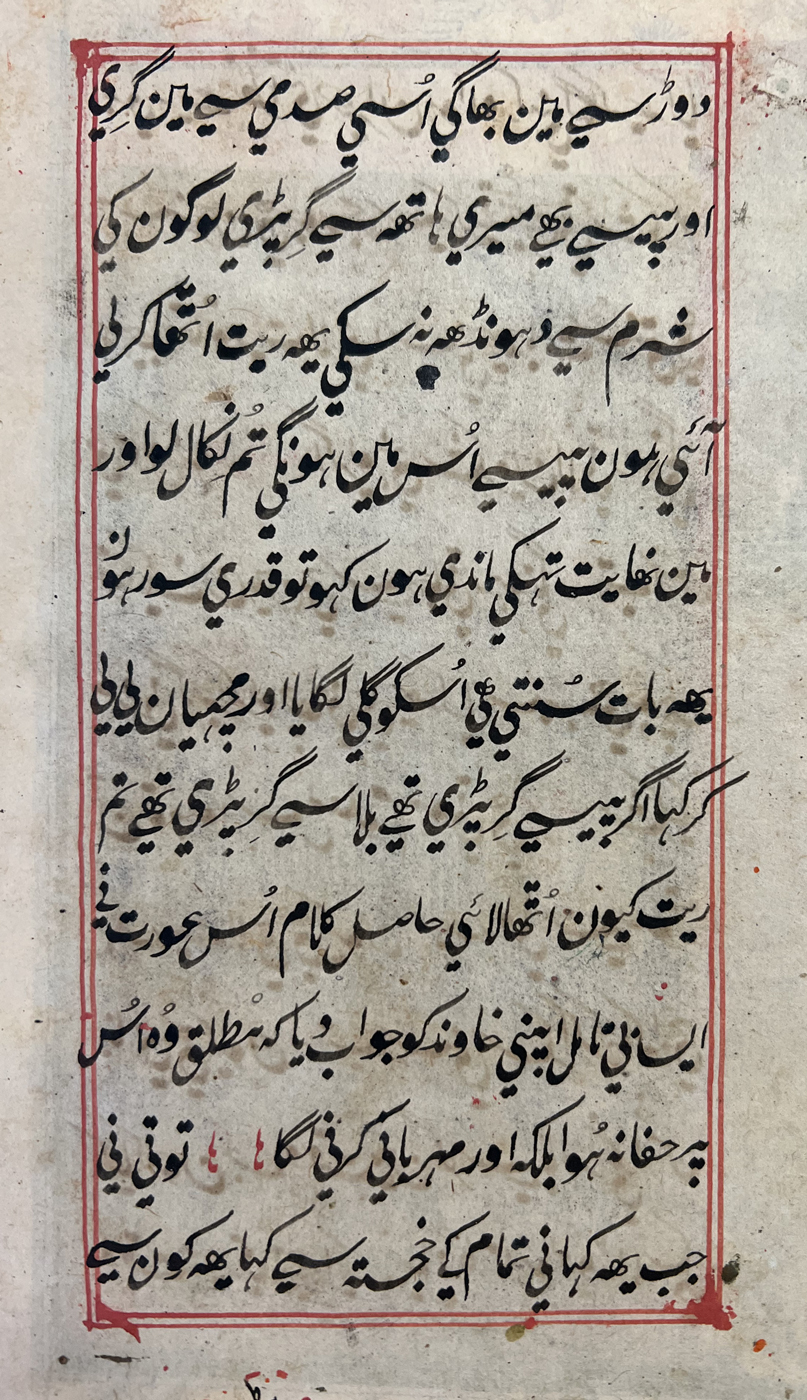 دوڑ سے مین بھاگي اُسي صدمي سے مین گِري
اور پیسے بھے میري ہاتھہ سے گِر پڑي لوگون کي
شرم سے دہونڈھہ نہ سکي یھہ ریت اُٹھا کر لي
آئي ہون پیسے اُس مین ہونگي تُم نِکال لو اور
مین نھایت تہکي ماندي ہون کہو تو قدري سو رہون
یھہ بات سُنتي ھي اُسکو گلي لگایا اور مچھیان لي لي
کر کہا اگر پیسے گر پڑي تھے بلا سے گِر پڑي تھے تم
ریت کیون اُٹھا لائي حاصل کلام اُس عورت ني
ایسا بي تامل اپني خاوند کو جواب دیا کہ مُطلق وُہ اُس
پر خفا نہ ہُوا بلکہ اور مہرباني کرني لگا ہا ہا توتي ني
جب یھہ کہاني تمام کے خجستہ سے کہا یھہ کون سے